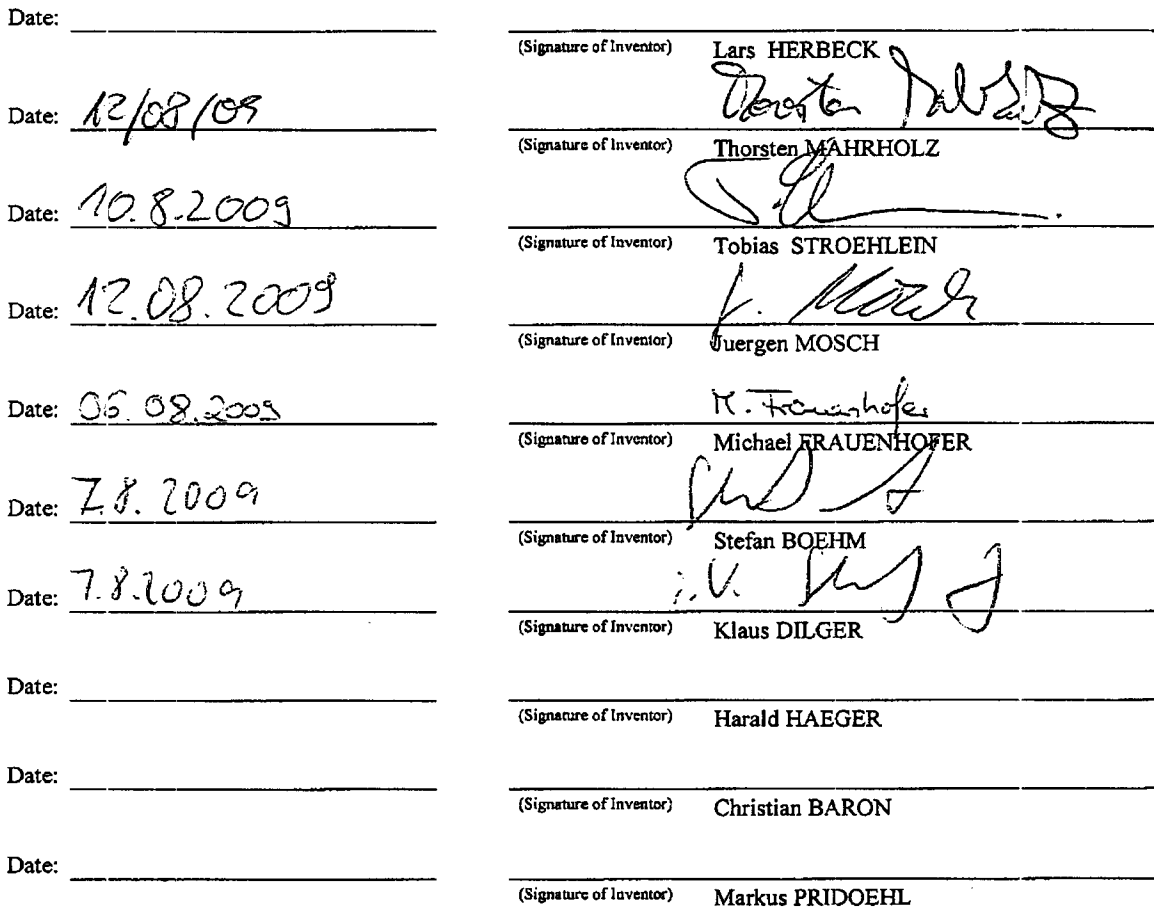 Date:
(Signature of Inventor) Lars HERBECK
Date: 12/08/09 Thorsten Mahrholz
(Signature of Inventor) Thorsten MAHRHOLZ
Date: 10.8.2009
(Signature of Inventor) Tobias STROEHLEIN
Date: 12.08.2009 J. Mosch
(Signature of Inventor) Juergen MOSCH
Date: 06.08.2009 M. Frauenhofer
(Signature of Inventor) Michael FRAUENHOFER
Date: 7.8.2009
(Signature of Inventor) Stefan BOEHM
Date: 7.8.2009 i.V.
(Signature of Inventor) Klaus DILGER
Date:
(Signature of Inventor) Harald HAEGER
Date:
(Signature of Inventor) Christian BARON
Date:
(Signature of Inventor) Markus PRIDOEHL